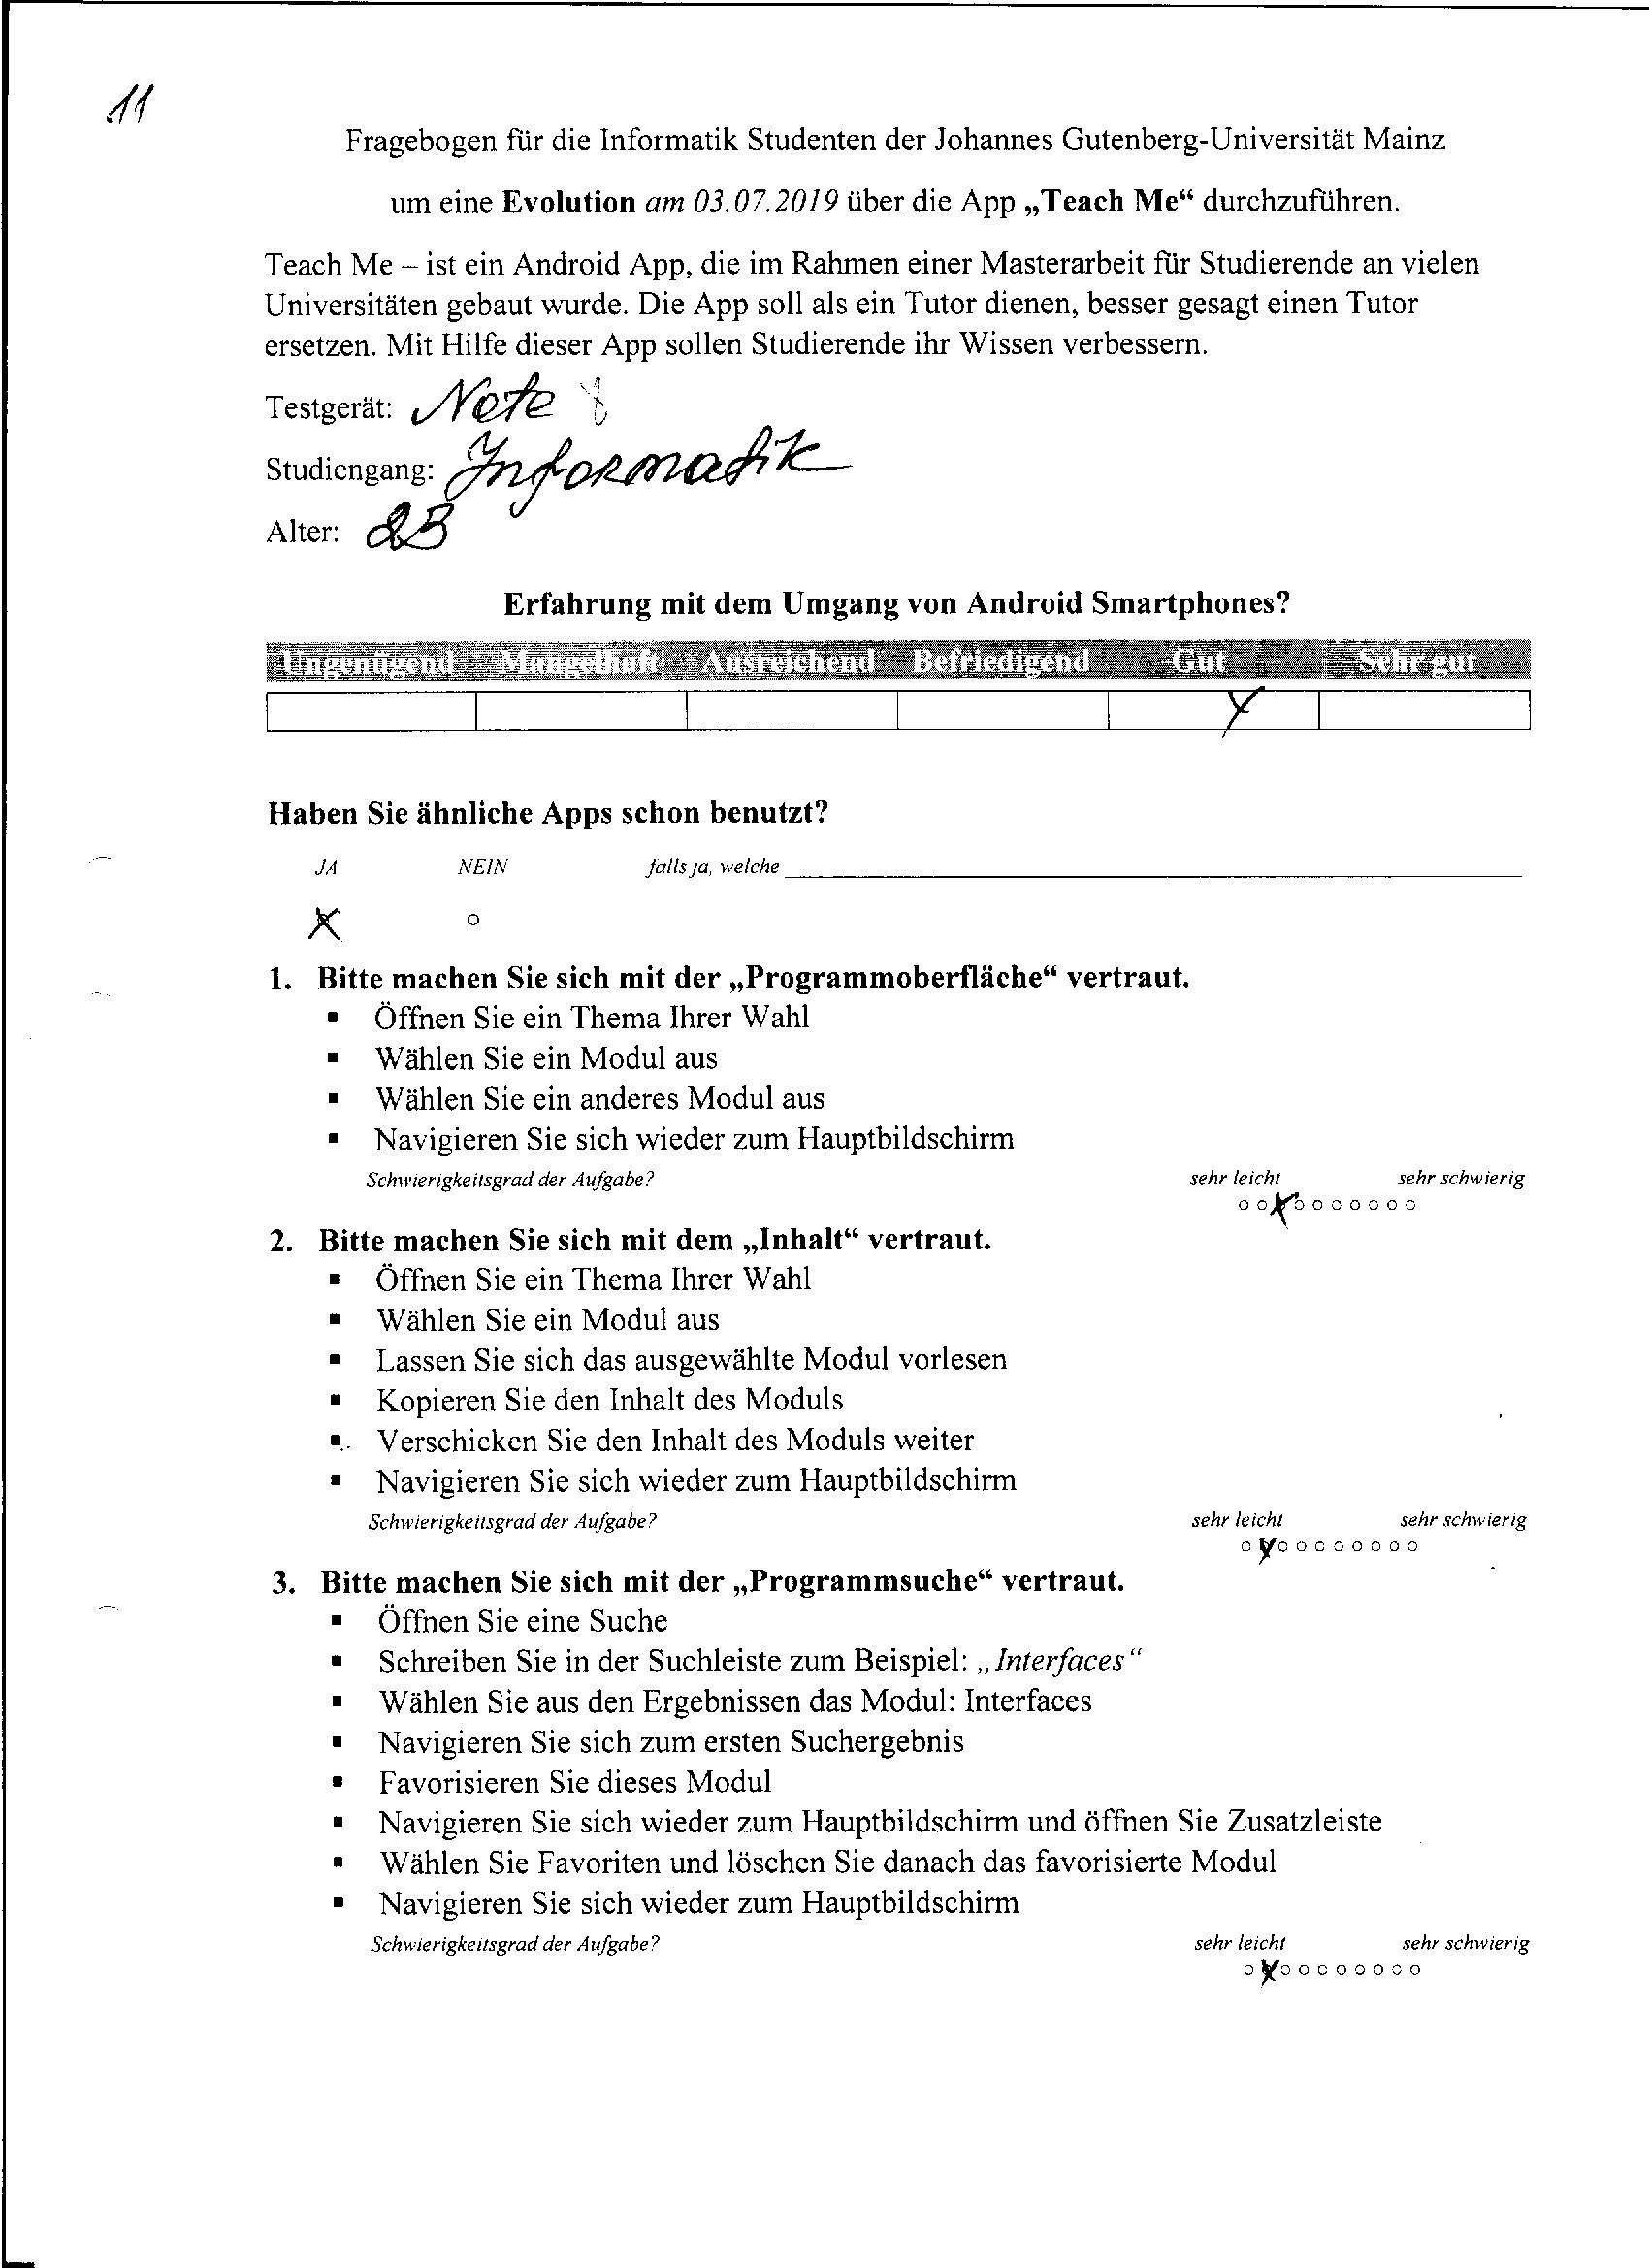 11
Fragebogen für die Informatik Studenten der Johannes Gutenberg-Universität Mainz
um eine Evolution am 03.07.2019 über die App „Teach Me“ durchzuführen.
Teach Me – ist ein Android App, die im Rahmen einer Masterarbeit für Studierende an vielen
Universitäten gebaut wurde. Die App soll als ein Tutor dienen, besser gesagt einen Tutor
ersetzen. Mit Hilfe dieser App sollen Studierende ihr Wissen verbessern.
Testgerät: Note 8
Studiengang: Informatik
Alter: 23
Erfahrung mit dem Umgang von Android Smartphones?
Ungenügend Mangelhaft Ausreichend Befriedigend Gut Sehr gut
Haben Sie ähnliche Apps schon benutzt?
JA NEIN falls ja, welche
1. Bitte machen Sie sich mit der „Programmoberfläche“ vertraut.
▪ Öffnen Sie ein Thema Ihrer Wahl
▪ Wählen Sie ein Modul aus
▪ Wählen Sie ein anderes Modul aus
▪ Navigieren Sie sich wieder zum Hauptbildschirm
Schwierigkeitsgrad der Aufgabe? sehr leicht sehr schwierig
2. Bitte machen Sie sich mit dem „Inhalt“ vertraut.
▪ Öffnen Sie ein Thema Ihrer Wahl
▪ Wählen Sie ein Modul aus
▪ Lassen Sie sich das ausgewählte Modul vorlesen
▪ Kopieren Sie den Inhalt des Moduls
▪ Verschicken Sie den Inhalt des Moduls weiter
▪ Navigieren Sie sich wieder zum Hauptbildschirm
Schwierigkeitsgrad der Aufgabe? sehr leicht sehr schwierig
3. Bitte machen Sie sich mit der „Programmsuche“ vertraut.
▪ Öffnen Sie eine Suche
▪ Schreiben Sie in der Suchleiste zum Beispiel: „Interfaces“
▪ Wählen Sie aus den Ergebnissen das Modul: Interfaces
▪ Navigieren Sie sich zum ersten Suchergebnis
▪ Favorisieren Sie dieses Modul
▪ Navigieren Sie sich wieder zum Hauptbildschirm und öffnen Sie Zusatzleiste
▪ Wählen Sie Favoriten und löschen Sie danach das favorisierte Modul
▪ Navigieren Sie sich wieder zum Hauptbildschirm
Schwierigkeitsgrad der Aufgabe? sehr leicht sehr schwierig